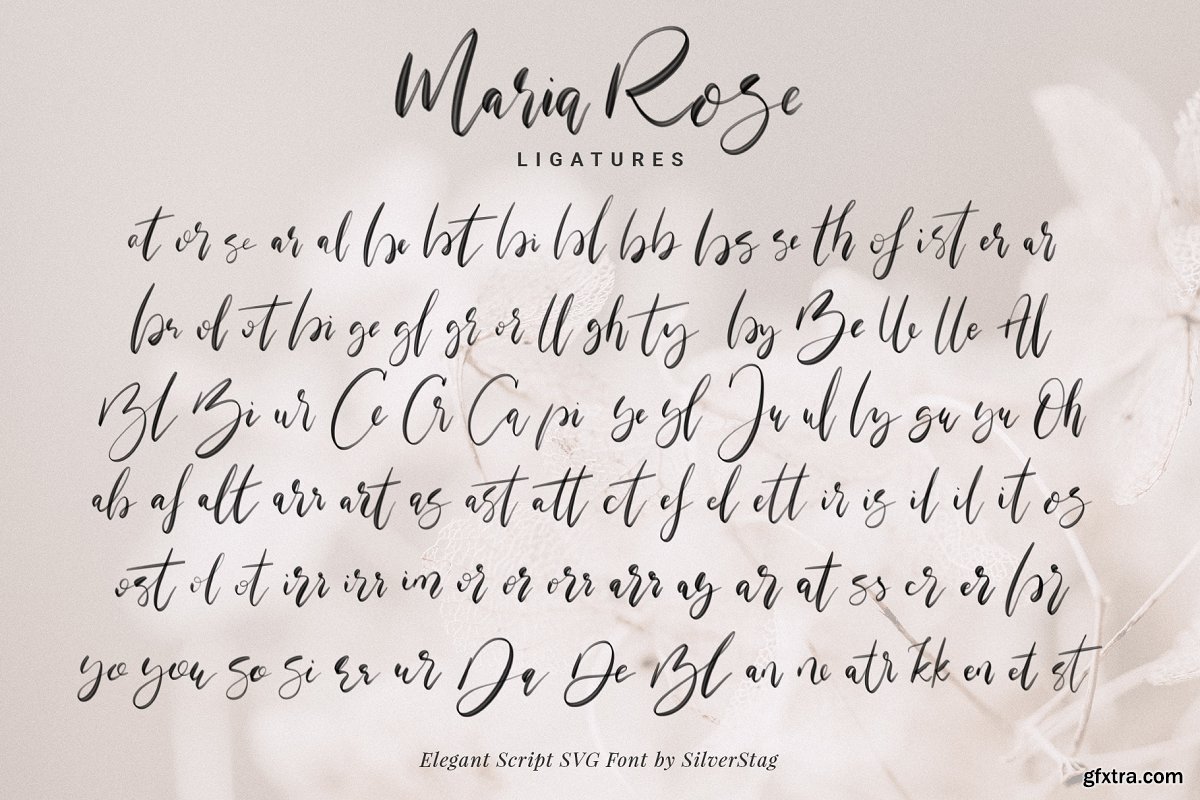 Maria Rose
LIGATURES
at or se ar al be bt bi bl bb bs se th of ist er ar
br ol ot bi ge gl gr or ll gh ty by Be lle lle Al
Bl Bi ur Ce Cr Ca pi ye yl Ju ul ly gu yu Oh
ab af alt arr art as ast att ct ef el ett ir is il il it os
ost ol ot irr irr im or or orr arr ay ar at ss er er br
yo you so si rr ur Da De Bl an ne atr kk en et st
Elegant Script SVG Font by SilverStag
gfxtra.com